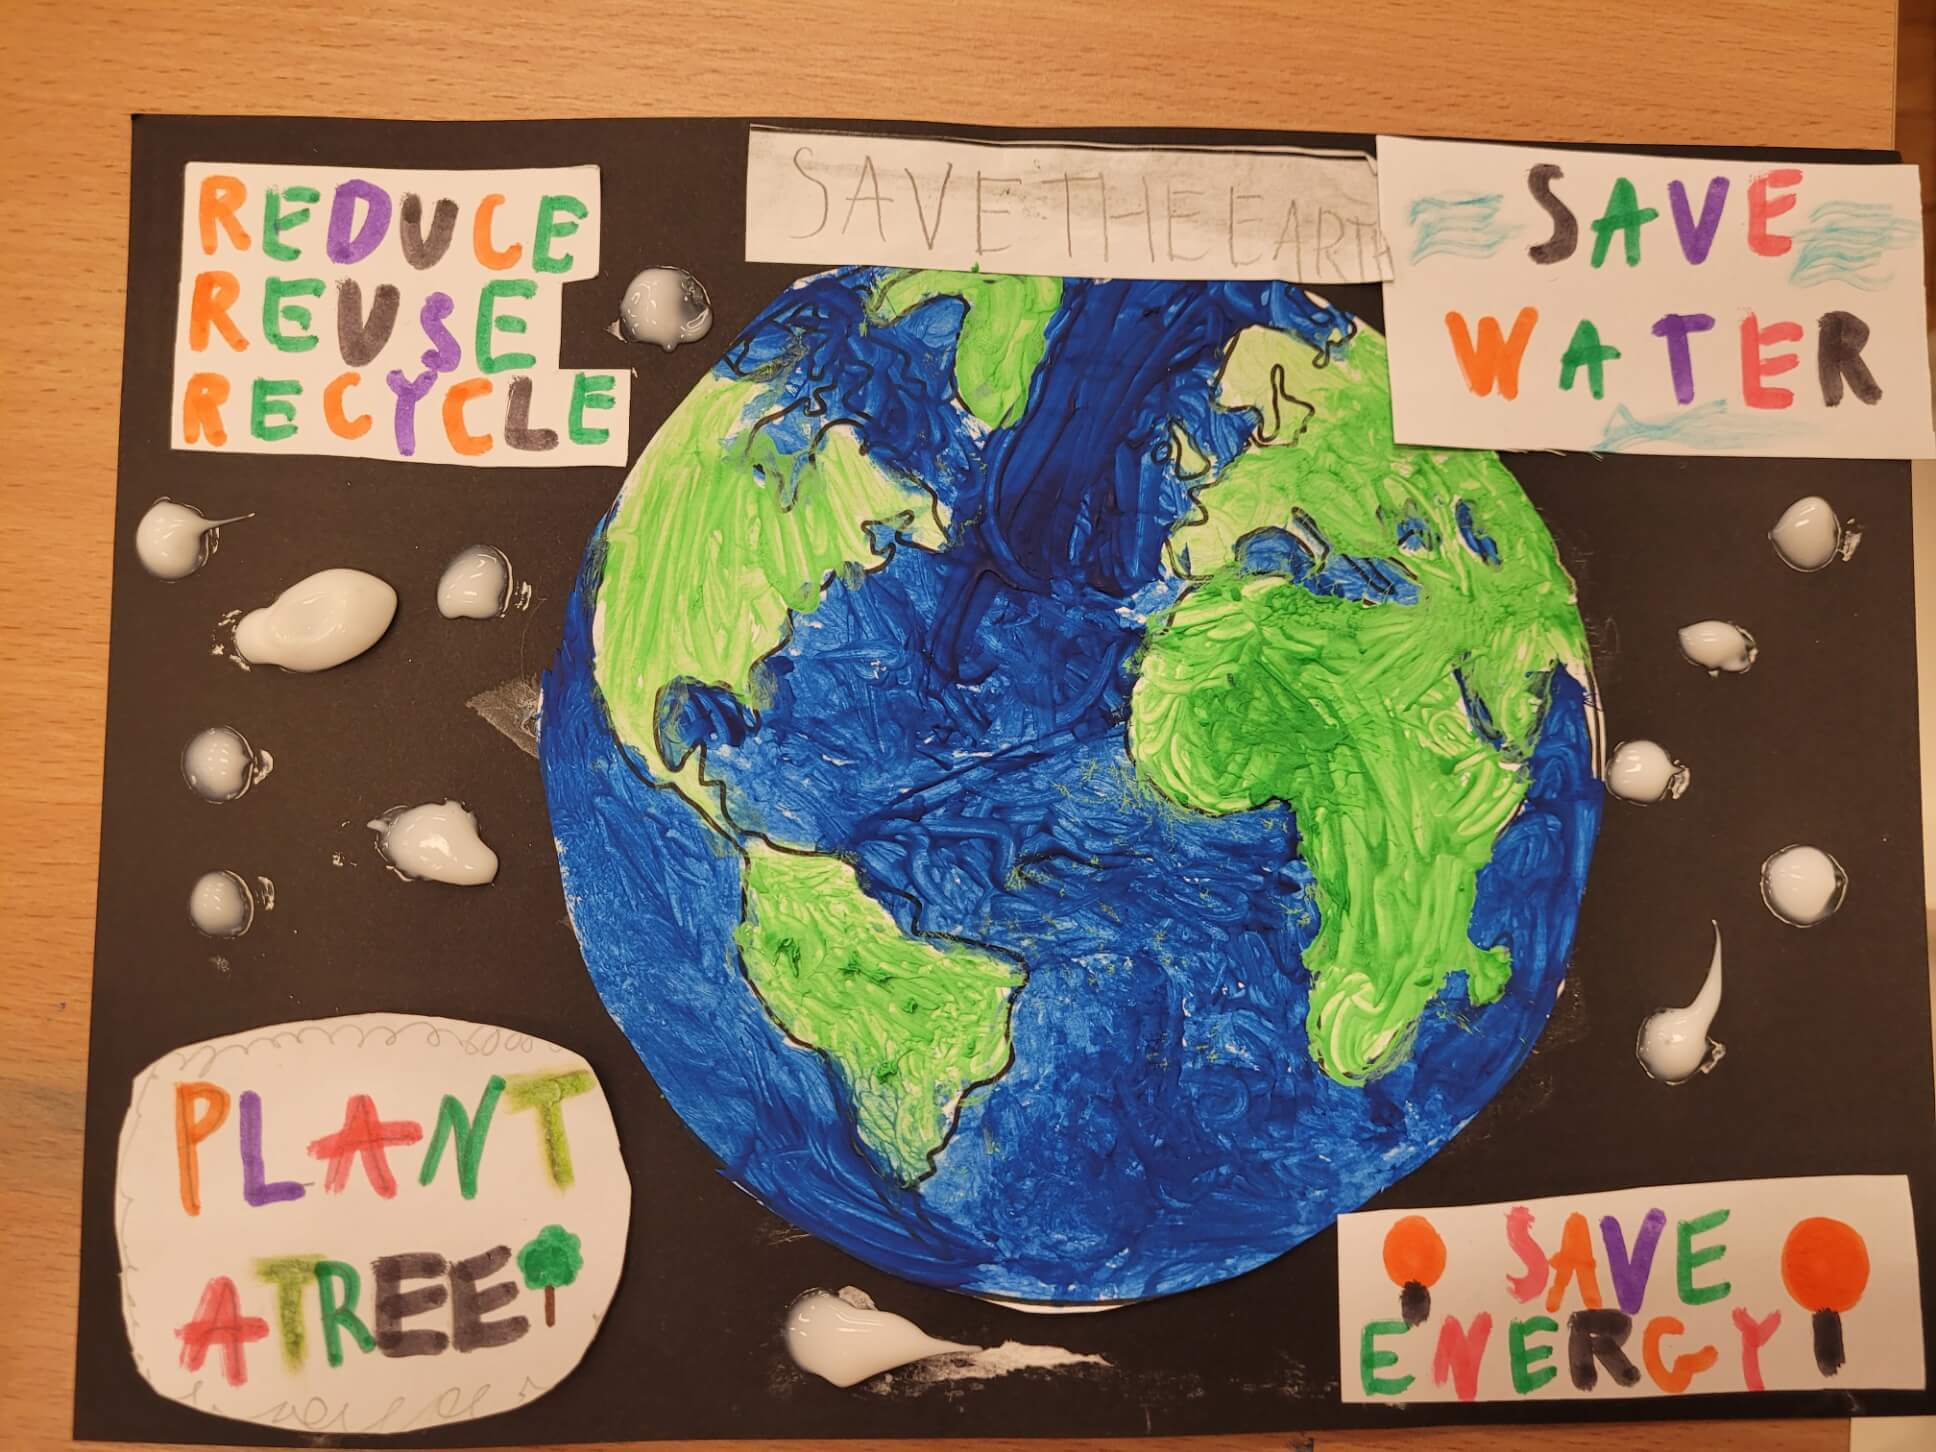 REDUCE
REUSE
RECYCLE
SAVE THE EARTH
SAVE
WATER
PLANT
A TREE
SAVE
ENERGY